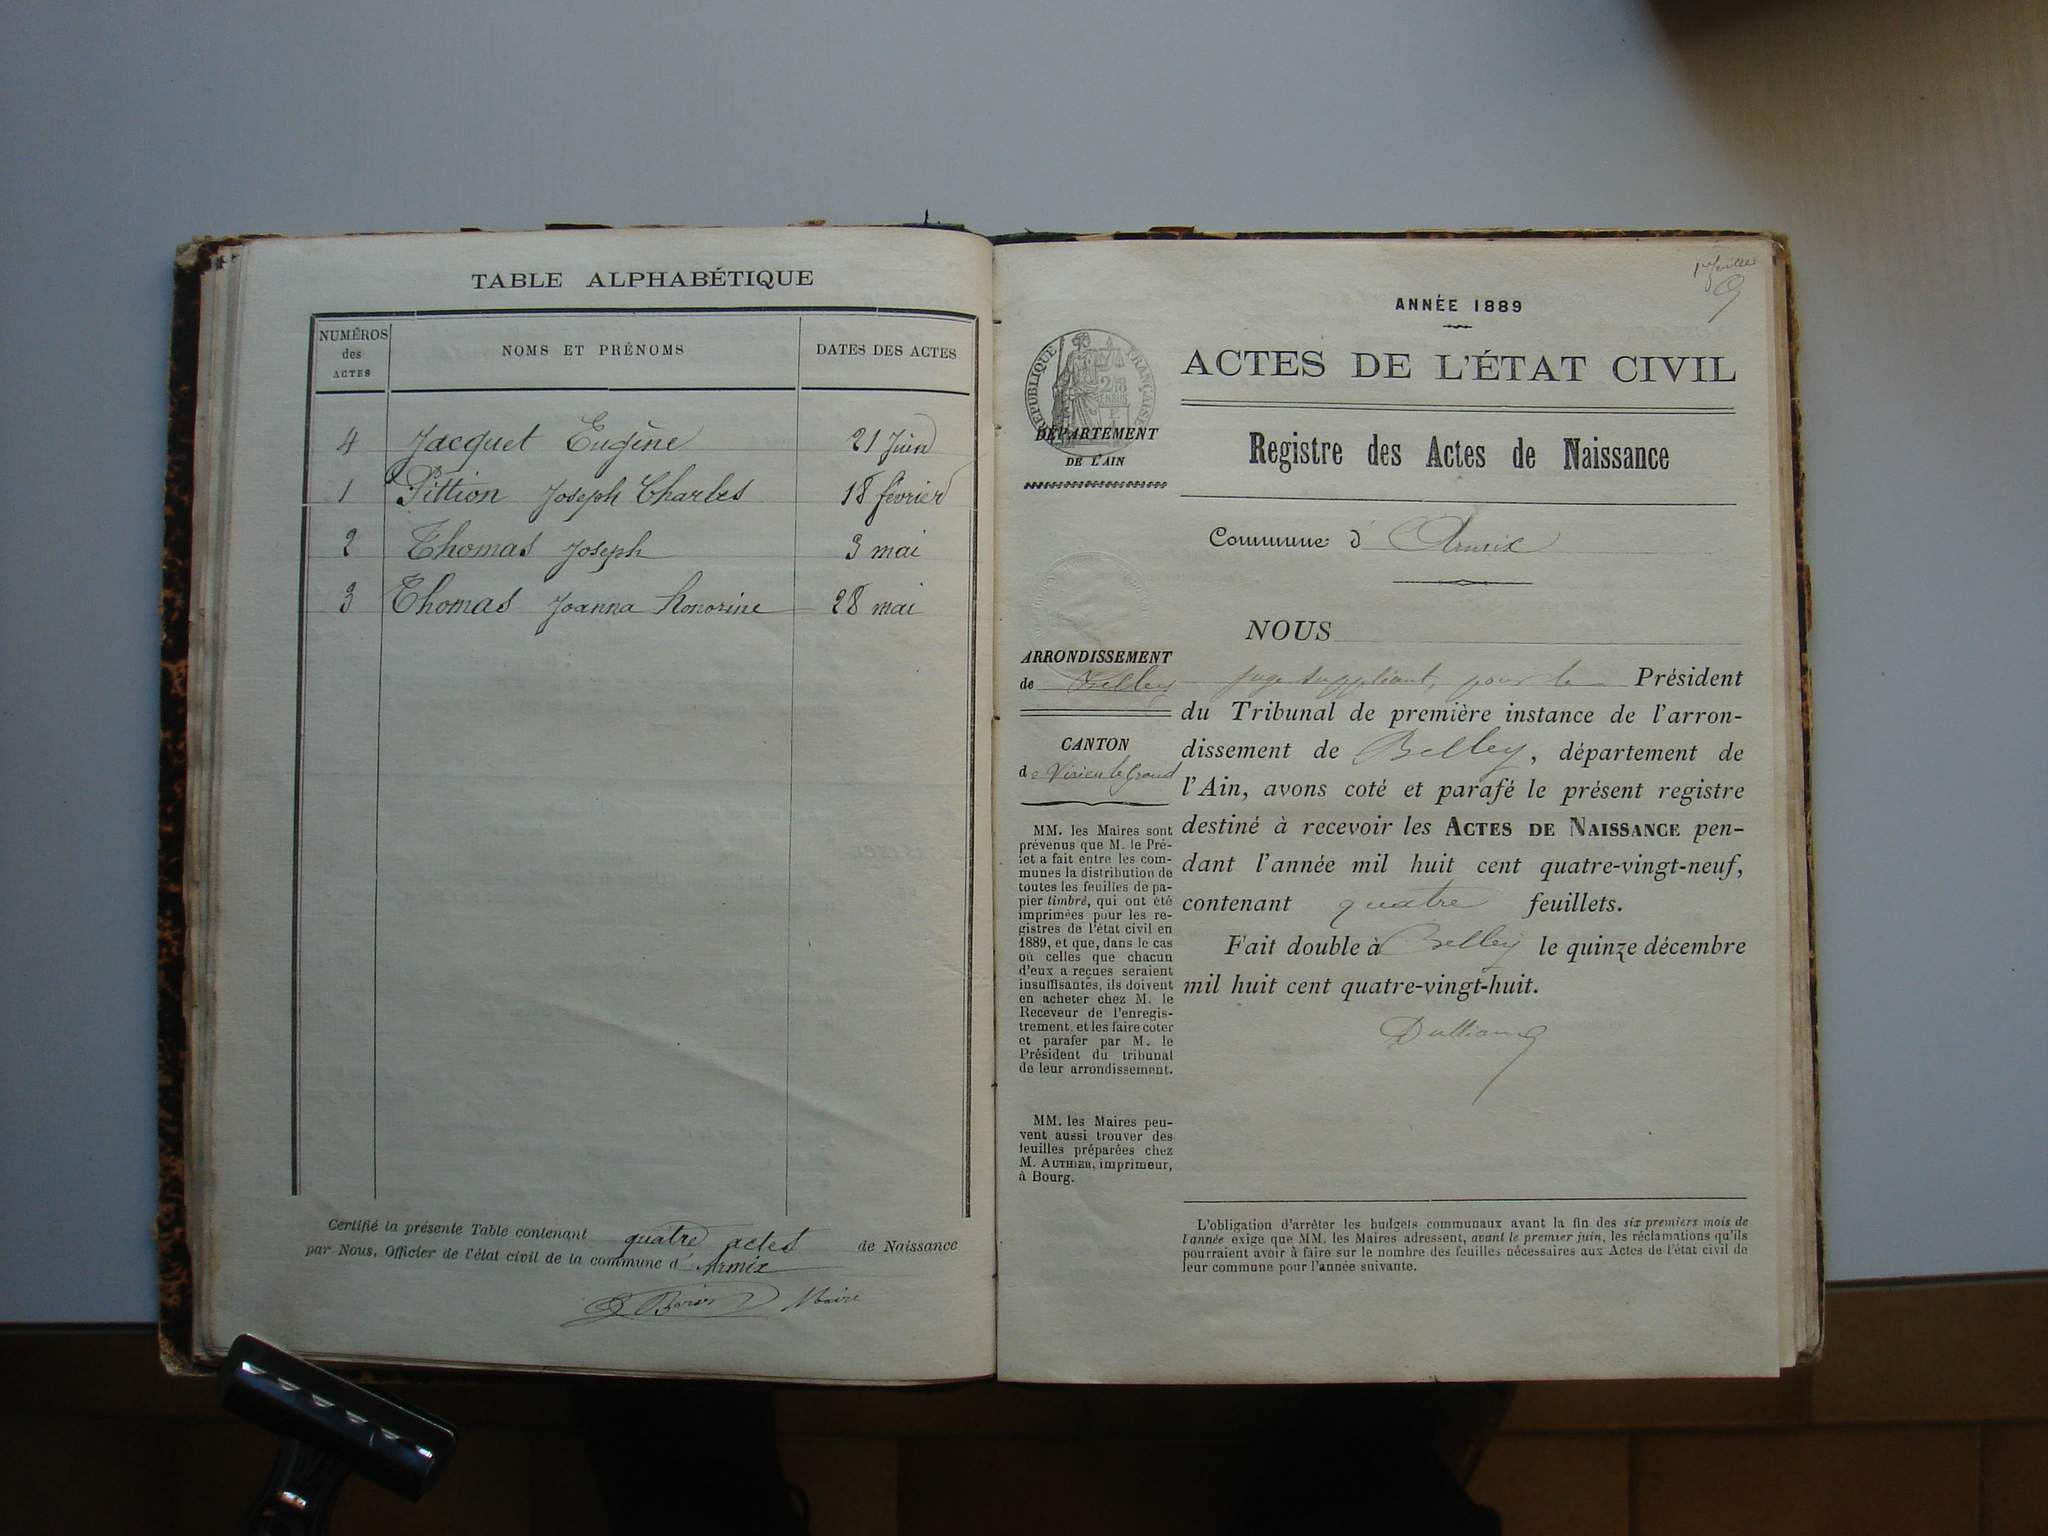 TABLE ALPHABÉTIQUE
NUMÉROS
des
ACTES
NOMS ET PRÉNOMS
DATES DES ACTES
4 Jacquet Eugène 21 Juin
1 Pittion Joseph Charles 18 février
2 Thomas Joseph 3 mai
3 Thomas Joanna honorine 28 mai
Certifié la présente Table contenant quatre actes de Naissance
par Nous, Officier de l'état civil de la commune d'Armix
Maire
1er feuillet
ANNÉE 1889
ACTES DE L'ÉTAT CIVIL
RÉPUBLIQUE FRANÇAISE
DÉPARTEMENT
DE L'AIN
Registre des Actes de Naissance
Commune d'Armix
ARRONDISSEMENT
de Belley
CANTON
de Virieu le Grand
MM. les Maires sont
prévenus que M. le Pré-
fet a fait entre les com-
munes la distribution de
toutes les feuilles de pa-
pier timbré, qui ont été
imprimées pour les re-
gistres de l'état civil en
1889, et que, dans le cas
où celles que chacun
d'eux a reçues seraient
insuffisantes, ils doivent
en acheter chez M. le
Receveur de l'enregis-
trement, et les faire coter
et parafer par M. le
Président du tribunal
de leur arrondissement.
MM. les Maires peu-
vent aussi trouver des
feuilles préparées chez
M. AUTHIER, imprimeur,
à Bourg.
NOUS
juge suppléant, pour le Président
du Tribunal de première instance de l'arron-
dissement de Belley, département de
l'Ain, avons coté et parafé le présent registre
destiné à recevoir les ACTES DE NAISSANCE pen-
dant l'année mil huit cent quatre-vingt-neuf,
contenant quatre feuillets.
Fait double à Belley le quinze décembre
mil huit cent quatre-vingt-huit.
L'obligation d'arrêter les budgets communaux avant la fin des six premiers mois de
l'année exige que MM. les Maires adressent, avant le premier juin, les réclamations qu'ils
pourraient avoir à faire sur le nombre des feuilles nécessaires aux Actes de l'état civil de
leur commune pour l'année suivante.